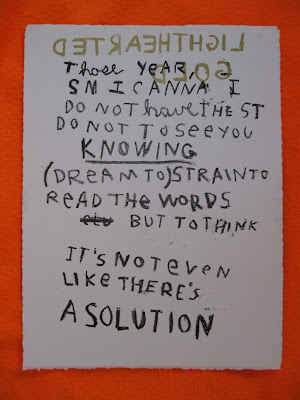 LIGHTHEARTED
GOLD
THOSE YEAR, I
SM I CANNA I
DO NOT HAVE THE ST
DO NOT TO SEE YOU
KNOWING
(DREAM TO) STRAIN TO
READ THE WORDS
BUT TO THINK
IT'S NOT EVEN
LIKE THERE'S
A SOLUTION